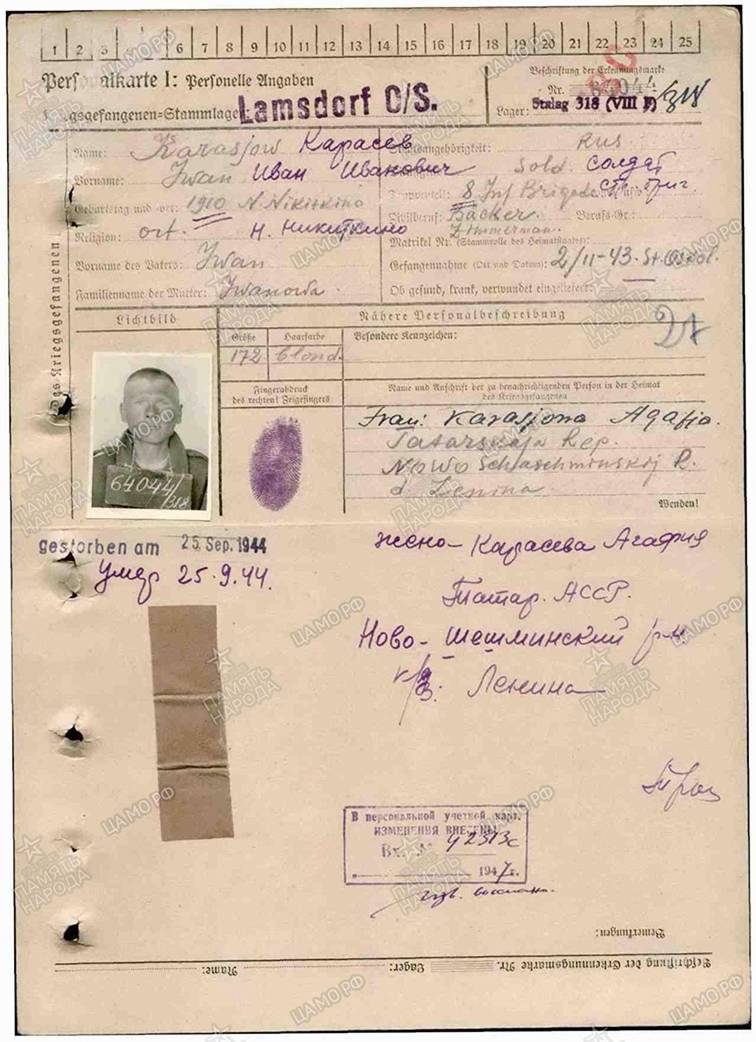 1 2 3 6 7 8 9 10 11 12 13 14 15 16 17 18 19 20 21 22 23 24 25
Personalkarte I: Personelle Angaben
Beschriftung der Erkennungsmarke
Kriegsgefangenen-Stammlager Lamsdorf O/S.
Nr. 64044/318
Lager: Stalag 318 (VIII F)
Name: Karasjow Карасев
Staatsangehörigkeit: Rus
Vorname: Iwan Иван Иванович
Sold. солдат
Geburtstag und -ort: 1910 N. Nikitkino
Truppenteil: 8 Inf Brigade
Religion: ort. Н. Никиткино
Zivilberuf: Bäcker. Berufs-Gr.:
Zimmerman.
Matrikel Nr. (Stammrolle des Heimatstaates):
Vorname des Vaters: Iwan
Gefangennahme (Ort und Datum): 2/II-43. St. Oskol.
Familienname der Mutter: Iwanowa.
Ob gesund, krank, verwundet eingeliefert:
des Kriegsgefangenen
Lichtbild
Nähere Personalbeschreibung
Größe Haarfarbe Besondere Kennzeichen:
172 blond.
Fingerabdruck
des rechten! Zeigefingers
Name und Anschrift der zu benachrichtigenden Person in der Heimat
des Kriegsgefangenen
64044/318
Frau: Karasjowa Agafia.
Tatarskaja Rep.
Nowo Schaschminskij R.
d Lenina
Wenden!
gestorben am 25. Sep. 1944
Умер 25.9.44.
жена- Карасева Агафия
Татар. АССР.
Ново- Шешминский р-н
Ленина
В персональной учетной карт.
ИЗМЕНЕНИЯ ВНЕСЕНЫ
Вх. № 42313с
1947г.
Bemerkungen:
Beschriftung der Erkennungsmarke Nr. Lager: Name:
ЦАМО.РФ
ПАМЯТЬ
НАРОДА